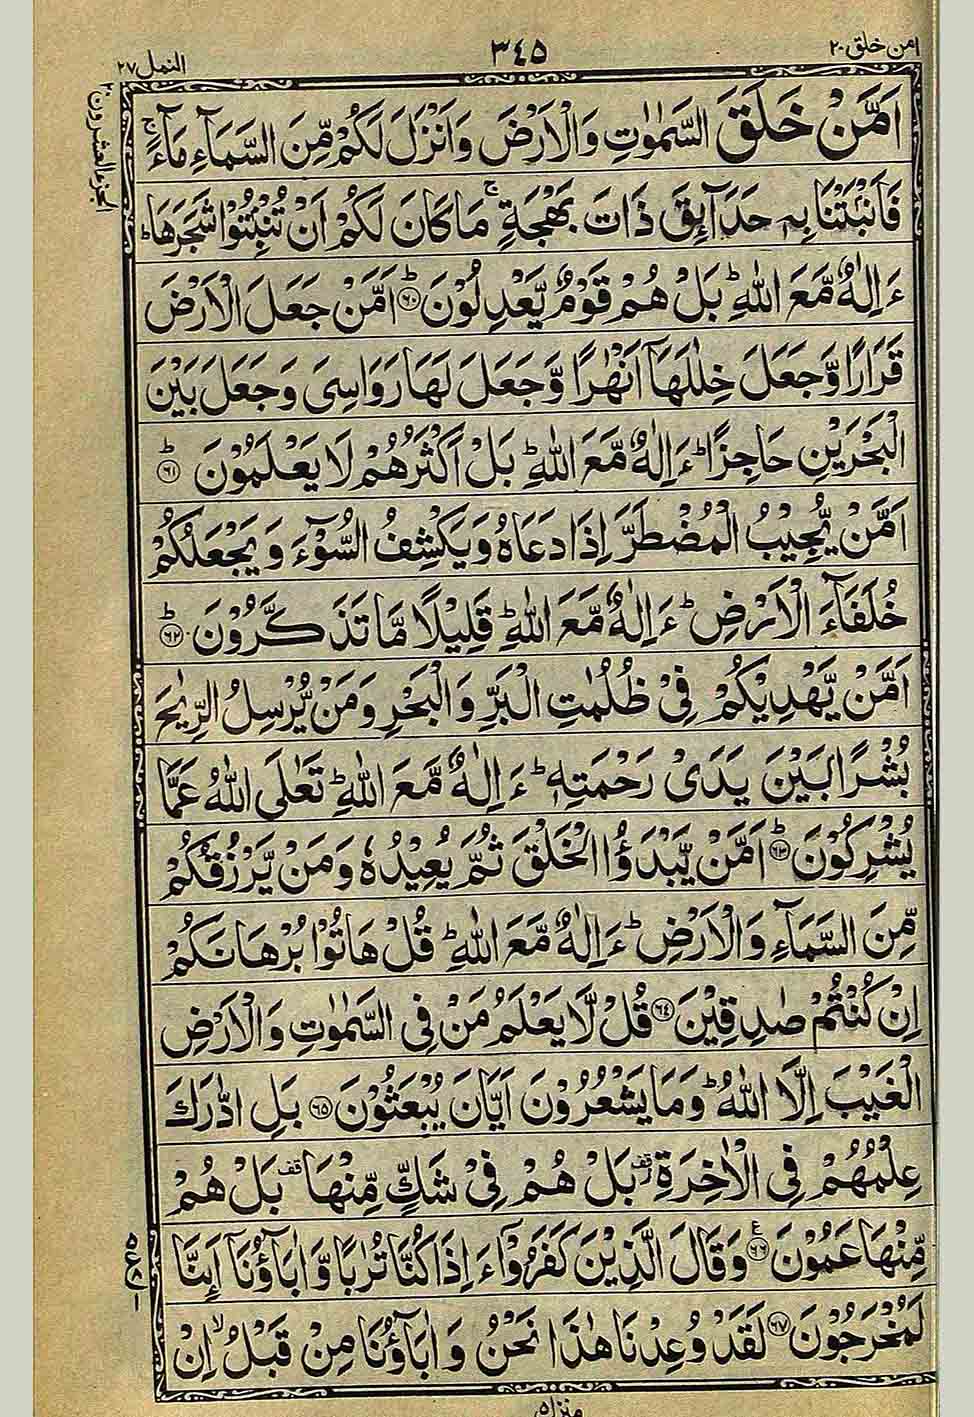 امن خلق ٢٠
٣٤٥
النمل ٢٧
الجزء العشرون ٢٠
اَمَّنْ خَلَقَ السَّمٰوٰتِ وَالْاَرْضَ وَاَنْزَلَ لَكُمْ مِّنَ السَّمَآءِ مَآءً ۚ
فَاَنْۢبَتْنَا بِهٖ حَدَآئِقَ ذَاتَ بَهْجَةٍ ۚ مَا كَانَ لَكُمْ اَنْ تُنْۢبِتُوْا شَجَرَهَا ؕ
ءَاِلٰهٌ مَّعَ اللّٰهِ ؕ بَلْ هُمْ قَوْمٌ يَّعْدِلُوْنَ ؕ ﴿٦٠﴾ اَمَّنْ جَعَلَ الْاَرْضَ
قَرَارًا وَّجَعَلَ خِلٰلَهَاۤ اَنْهٰرًا وَّجَعَلَ لَهَا رَوَاسِىَ وَجَعَلَ بَيْنَ
الْبَحْرَيْنِ حَاجِزًا ؕ ءَاِلٰهٌ مَّعَ اللّٰهِ ؕ بَلْ اَكْثَرُهُمْ لَا يَعْلَمُوْنَ ؕ ﴿٦١﴾
اَمَّنْ يُّجِيْبُ الْمُضْطَرَّ اِذَا دَعَاهُ وَيَكْشِفُ السُّوْٓءَ وَيَجْعَلُكُمْ
خُلَفَآءَ الْاَرْضِ ؕ ءَاِلٰهٌ مَّعَ اللّٰهِ ؕ قَلِيْلًا مَّا تَذَكَّرُوْنَ ؕ ﴿٦٢﴾
اَمَّنْ يَّهْدِيْكُمْ فِىْ ظُلُمٰتِ الْبَرِّ وَالْبَحْرِ وَمَنْ يُّرْسِلُ الرِّيٰحَ
بُشْرًۢا بَيْنَ يَدَىْ رَحْمَتِهٖ ؕ ءَاِلٰهٌ مَّعَ اللّٰهِ ؕ تَعٰلَى اللّٰهُ عَمَّا
يُشْرِكُوْنَ ؕ ﴿٦٣﴾ اَمَّنْ يَّبْدَؤُا الْخَلْقَ ثُمَّ يُعِيْدُهٗ وَمَنْ يَّرْزُقُكُمْ
مِّنَ السَّمَآءِ وَالْاَرْضِ ؕ ءَاِلٰهٌ مَّعَ اللّٰهِ ؕ قُلْ هَاتُوْا بُرْهَانَكُمْ
اِنْ كُنْتُمْ صٰدِقِيْنَ ﴿٦٤﴾ قُلْ لَّا يَعْلَمُ مَنْ فِى السَّمٰوٰتِ وَالْاَرْضِ
الْغَيْبَ اِلَّا اللّٰهُ ؕ وَمَا يَشْعُرُوْنَ اَيَّانَ يُبْعَثُوْنَ ﴿٦٥﴾ بَلِ ادّٰرَكَ
عِلْمُهُمْ فِى الْاٰخِرَةِ قف بَلْ هُمْ فِىْ شَكٍّ مِّنْهَا قف بَلْ هُمْ
مِّنْهَا عَمُوْنَ ﴿٦٦﴾ ع وَقَالَ الَّذِيْنَ كَفَرُوْۤا ءَاِذَا كُنَّا تُرٰبًا وَّاٰبَآؤُنَاۤ اَئِنَّا
لَمُخْرَجُوْنَ ﴿٦٧﴾ لَقَدْ وُعِدْنَا هٰذَا نَحْنُ وَاٰبَآؤُنَا مِنْ قَبْلُ ۙ اِنْ
منزل ٥